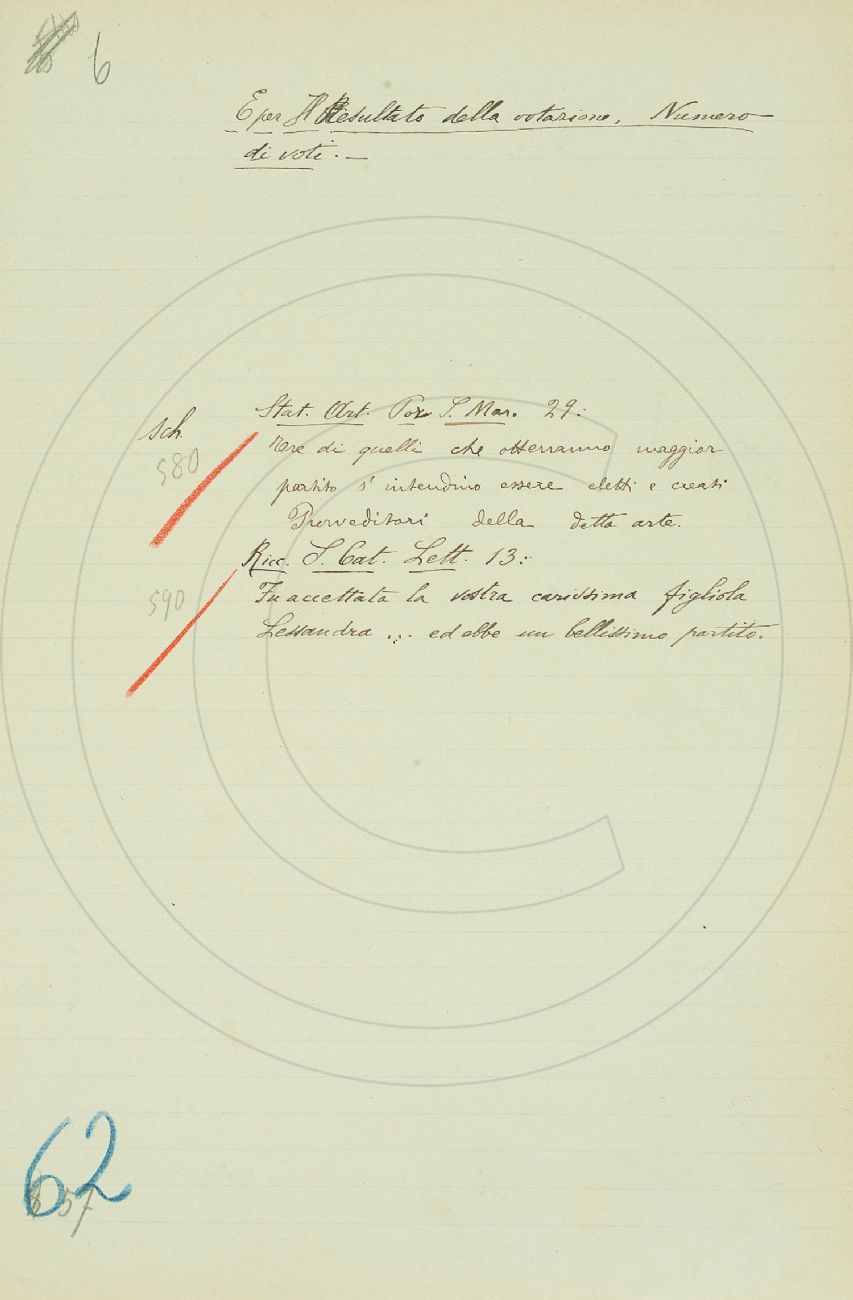 6
E per Il Resultato della votazione, Numero
di voti. —
Stat. Art. Por S. Mar. 29:
Sch.
580
tre di quelli che otterranno maggior
partito s'intendino essere eletti e creati
Provveditori della detta arte.
Ricc. S. Cat. Lett. 13:
590
Fu accettata la vostra carissima figliola
Lessandra ... ed ebbe un bellissimo partito.
62
57